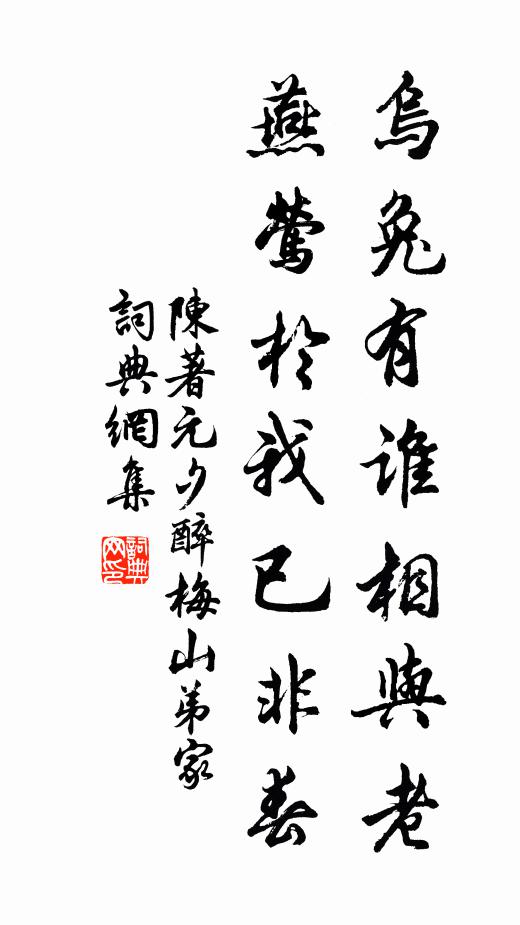 烏兔有誰相與老
燕鶯於我已非春
陳著元夕醉梅山弟家
詞典網集
詞典網印